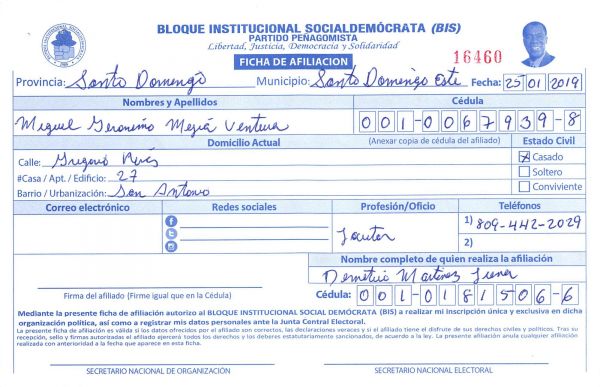 BLOQUE INSTITUCIONAL SOCIALDEMÓCRATA (BIS)
PARTIDO PEÑAGOMISTA
Libertad, Justicia, Democracia y Solidaridad
FICHA DE AFILIACION
16460
Provincia: Santo Domingo Municipio: Santo Domingo Este Fecha: 25 01 2019
Nombres y Apellidos Cédula
Miguel Geronimo Mejía Ventura 001-0067939-8
Domicilio Actual (Anexar copia de cédula del afiliado) Estado Civil
Calle: Gregorio X Casado
#Casa / Apt. / Edificio: 27 Soltero
Barrio / Urbanización: San Antonio Conviviente
Correo electrónico Redes sociales Profesión/Oficio Teléfonos
Locutor 1) 809-442-2029
2)
Nombre completo de quien realiza la afiliación
Martinez
Firma del afiliado (Firme igual que en la Cédula) Cédula: 001-0181506-6
Mediante la presente ficha de afiliación autorizo al BLOQUE INSTITUCIONAL SOCIAL DEMÓCRATA (BIS) a realizar mi inscripción única y exclusiva en dicha
organización política, así como a registrar mis datos personales ante la Junta Central Electoral.
La presente ficha de afiliación es válida si los datos ofrecidos por el afiliado son correctos, las declaraciones veraces y si el afiliado tiene el disfrute de sus derechos civiles y políticos. Tras su
recepción, sello y firmas autorizadas el afiliado ejercerá todos los derechos y los deberes estatutariamente sancionados, de acuerdo a la ley. La presente afiliación anula cualquier afiliación
realizada con anterioridad a la fecha que aparece en esta ficha.
SECRETARIO NACIONAL DE ORGANIZACIÓN SECRETARIO NACIONAL ELECTORAL